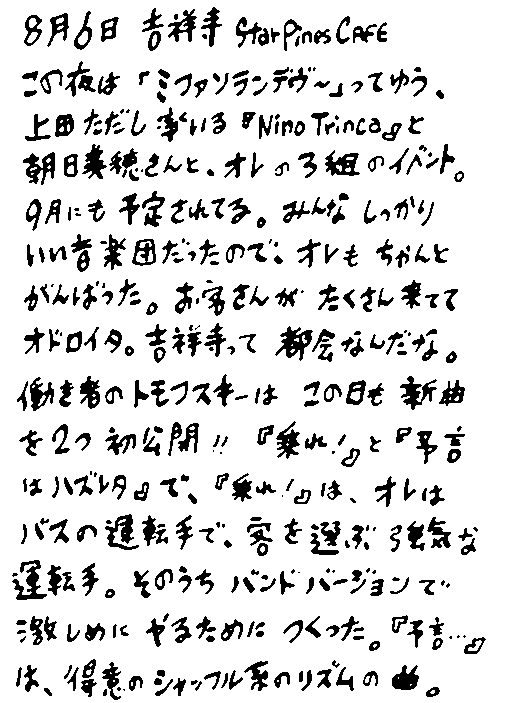 8月6日 吉祥寺 StarPinesCAFE
この夜は「ミファソランデヴ〜」ってゆう、
上田ただし率いる『Nino Trinca』と
朝日美穂さんと、オレの3組のイベント。
9月にも予定されてる。みんなしっかり
いい音楽団だったので、オレもちゃんと
がんばった。お客さんがたくさん来てて
オドロイタ。吉祥寺って都会なんだな。
働き者のトモフスキーはこの日も新曲
を2つ初公開!!『乗れ!』と『予言
はハズレタ』で、『乗れ!』は、オレは
バスの運転手で、客を選ぶ強気な
運転手。そのうちバンドバージョンで
激しめにやるためにつくった。『予言…』
は、得意のシャッフル系のリズムの曲。